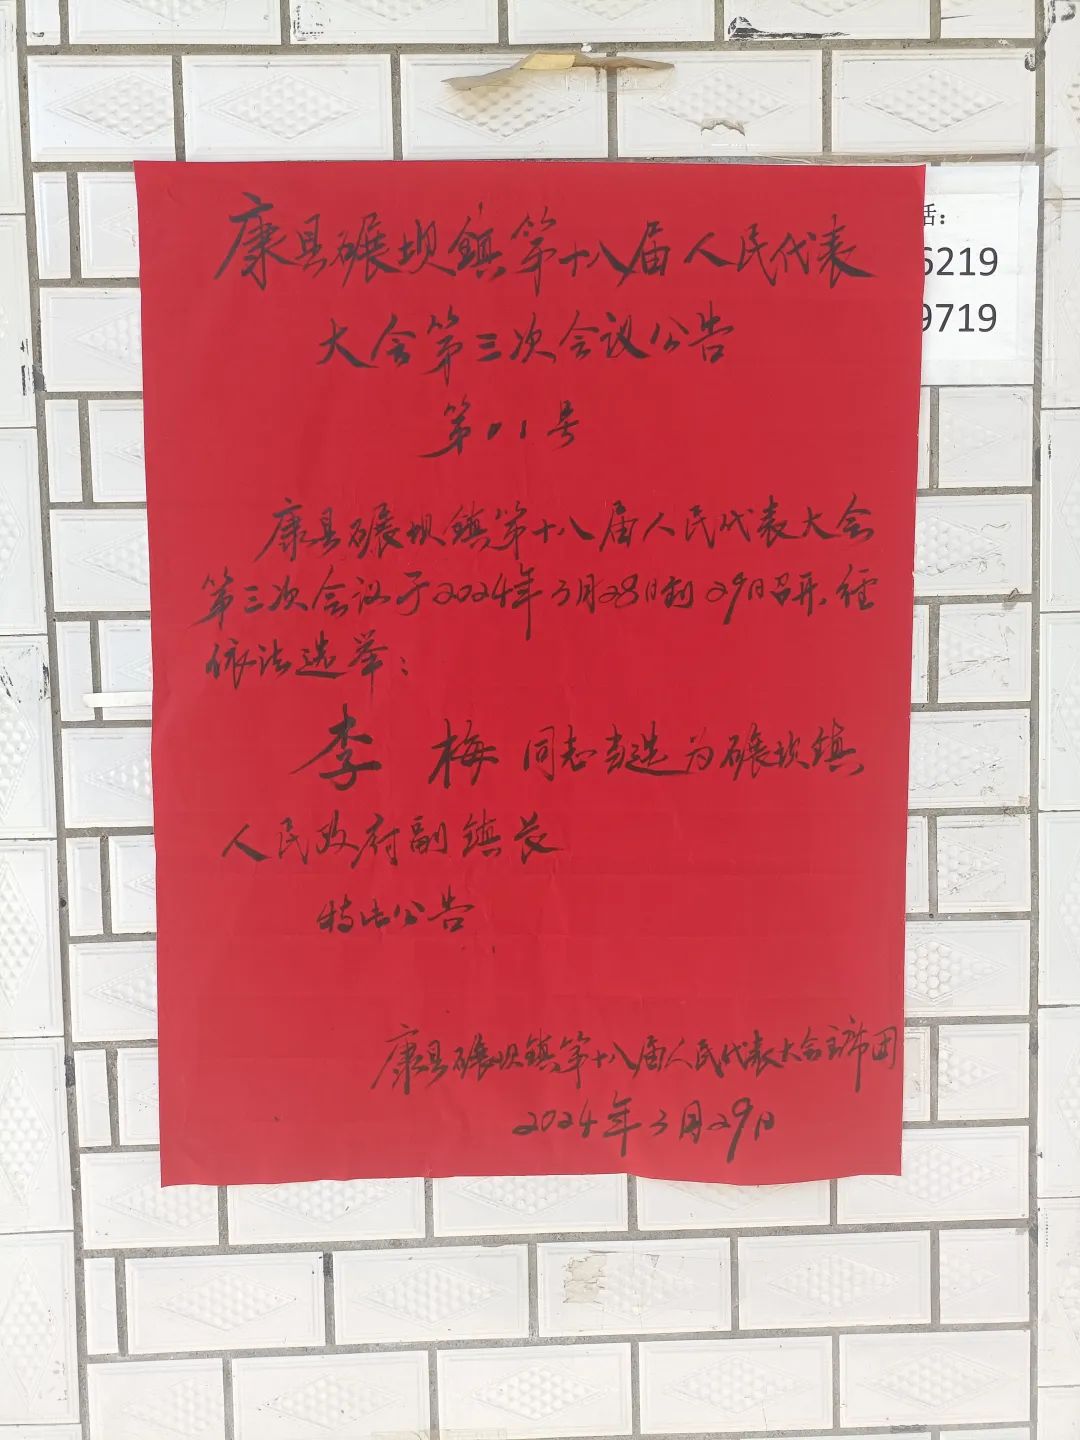 康县碾坝鎮第十八届人民代表
大会第三次会议公告
第01号
康县碾坝鎮第十八届人民代表大会
第三次会议于2024年3月28日到29日召开,经
依法选举:
李 梅 同志当选为碾坝鎮
人民政府副鎮长
特此公告
康县碾坝鎮第十八届人民代表大会主席团
2024年3月29日
话:
6219
9719